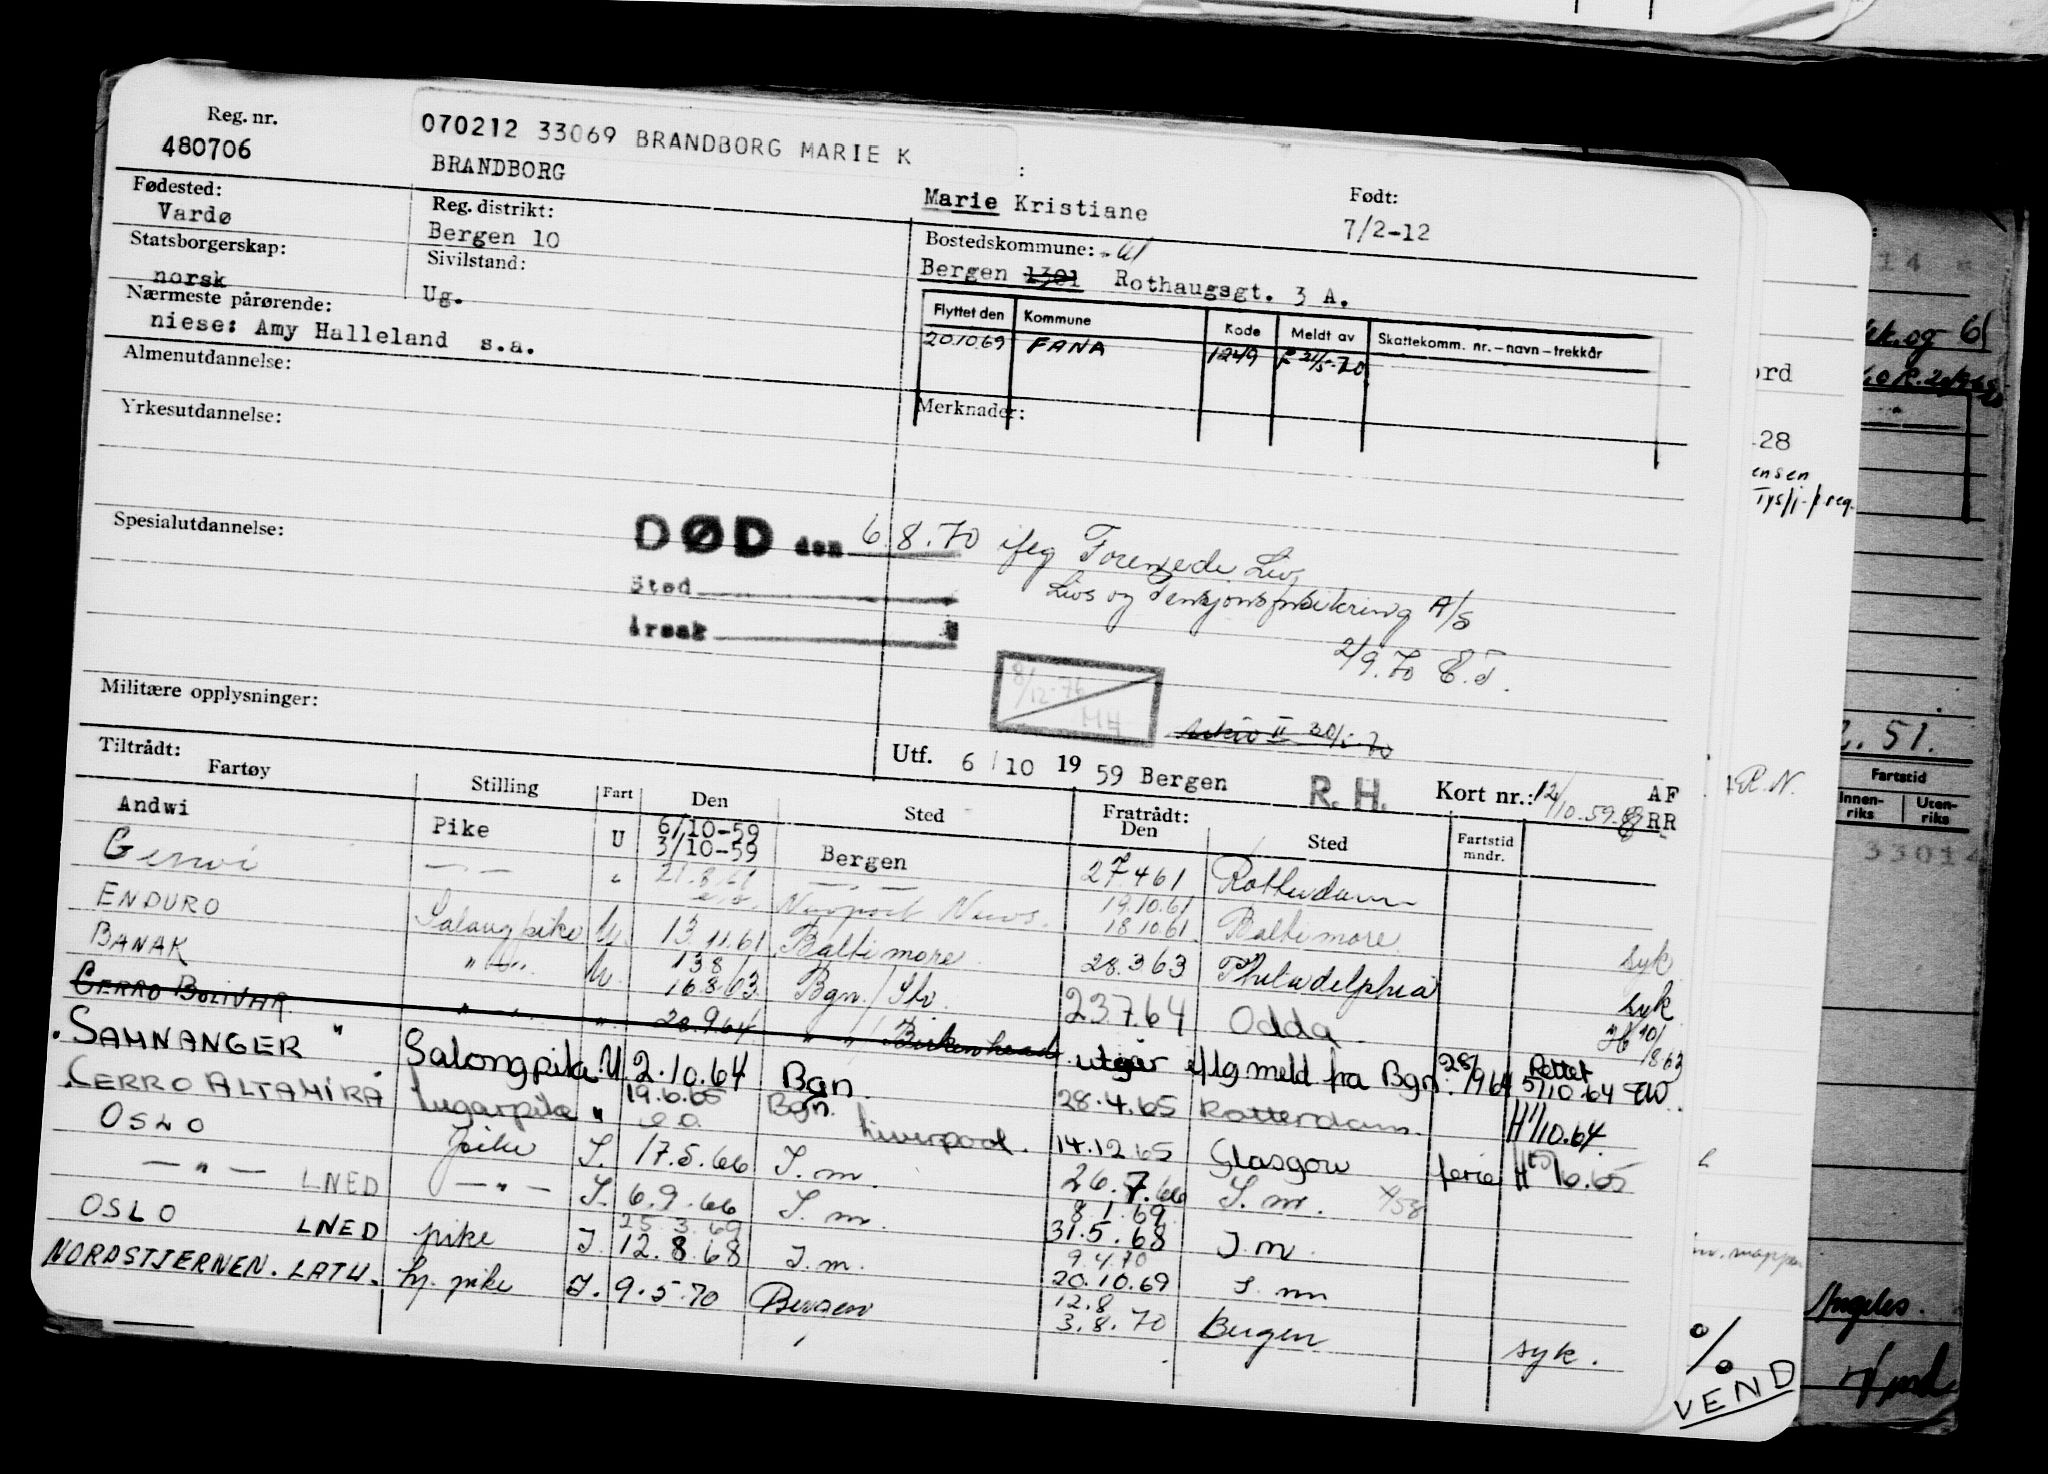 Reg. nr.
480706
070212 33069 BRANDBORG MARIE K
BRANDBORG
Marie Kristiane
Født:
7/2-12
Fødested:
Vardø
Reg. distrikt:
Bergen 10
Bostedskommune:
Bergen 1301 Rothaugsgt. 3 A.
Statsborgerskap:
norsk
Sivilstand:
Ug.
Nærmeste pårørende:
niese: Amy Halleland s.a.
Flyttet den Kommune Kode Meldt av Skattekomm. nr.-navn-trekkår
20.10.69 FANA 1249
Almenutdannelse:
Yrkesutdannelse:
Merknader:
Spesialutdannelse:
DØD den 6.8.70 iflg Forenede Liv,
Livs og Pensjonsforsikring A/S
2/9.70 E.T.
Sted
Årsak
8/12-76
MH
Arkiv II 30/1-70
Militære opplysninger:
Utf. 6/10 1959 Bergen
R. H.
Kort nr.: 12/10.59.
AF
RR
Tiltrådt:
Fartøy Stilling Fart Den Sted Fratrådt: Den Sted Fartstid mndr.
Andwi Pike U 6/10-59 3/10-59 Bergen 27.4.61 Rotterdam
Gerwi — " — " 21.8.61 Newport News. 19.10.61 18.10.61 Baltimore syk
ENDURO Salongpike U. 13.11.61 Baltimore 28.3.63 Philadelphia syk
BANAK " U. 13.8 16.8.63 Bgn./Slv. 23.7.64 Odda
CERRO BOLIVAR " " 28.9.64 " " / Birkenhead utgår iflg meld fra Bgn. 28/9 64
SAMNANGER " Salongpike U 2.10.64 Bgn. 28.4.65 Rotterdam
CERRO ALTAMIRA lugarpike " 19.6.65 Bgn. Liverpool. 14.12.65 Glasgow ferie
OSLO pike I. 17.5.66 I.m. 26.7.66 I.m.
— " — LNED — " — I. 6.9.66 I.m. 8.1.69 31.5.68 I.m.
OSLO LNED pike I. 25.3.69 12.8.68 I.m. 9.4.70 20.10.69 I.m
NORDSTJERNEN. LATU. hj. pike I. 9.5.70 Bergen 12.8 3.8.70 Bergen syk.
Rettet
5/10.64
H 1/10.64
ord
28
ensen
2.51.
Fartstid
Innen-riks Uten-riks
33014
R.N.
Angeles.
%
VEND